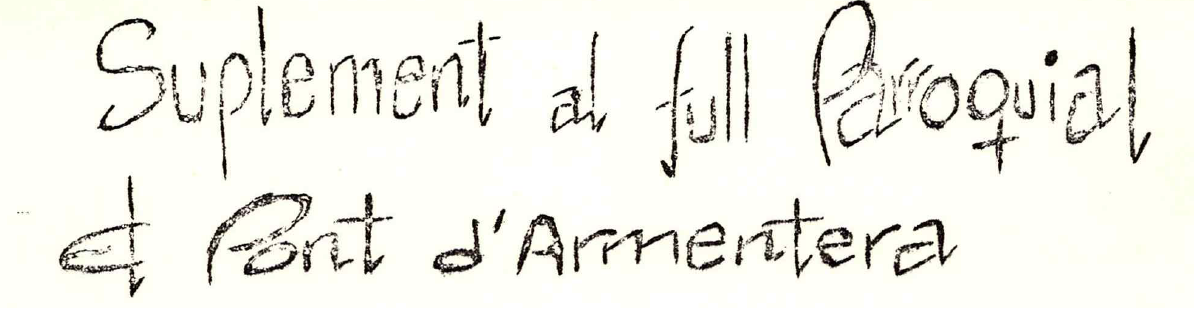 Suplement al full Parroquial
d Pont d'Armentera